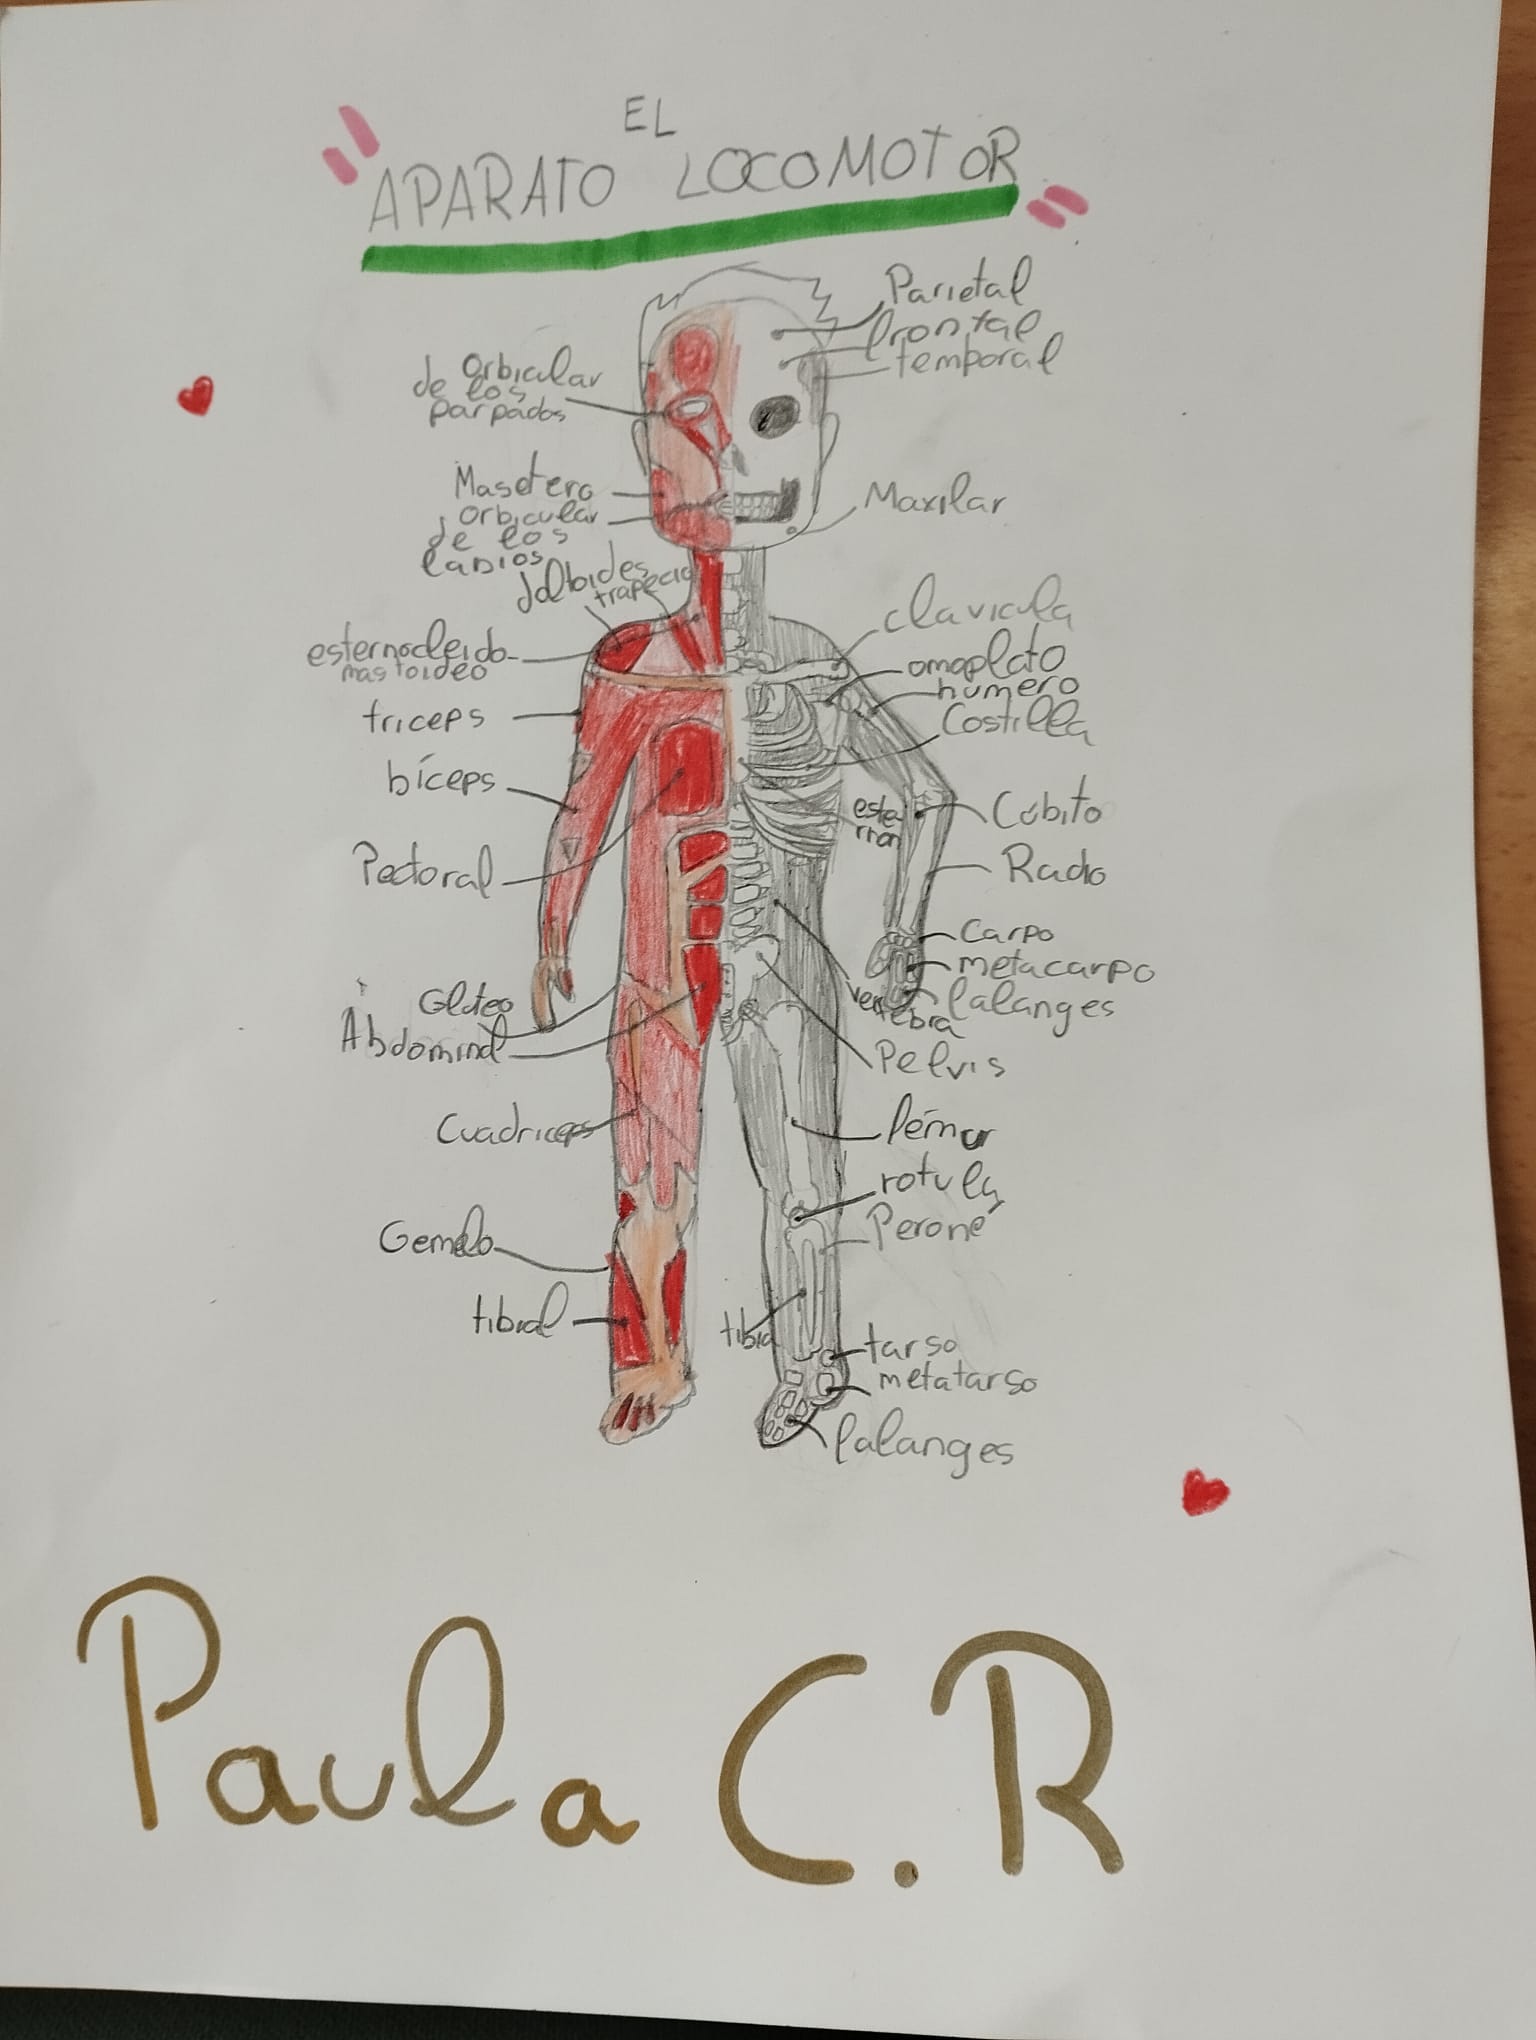 EL
APARATO LOCOMOTOR
Parietal
frontal
temporal
Orbicular
de los
parpados
Masetero
orbicular
de los
labios
Maxilar
deltoides
trapecio
esternocleido-
mastoideo
clavicula
omoplato
humero
Costilla
triceps
bíceps
Pectoral
ester
non
Cúbito
Radio
Carpo
metacarpo
falanges
vertebra
Pelvis
Gluteo
Abdominal
Cuadriceps
fémur
rotula
Peroné
Gemelo
tibial
tibia
tarso
metatarso
falanges
Paula C.R